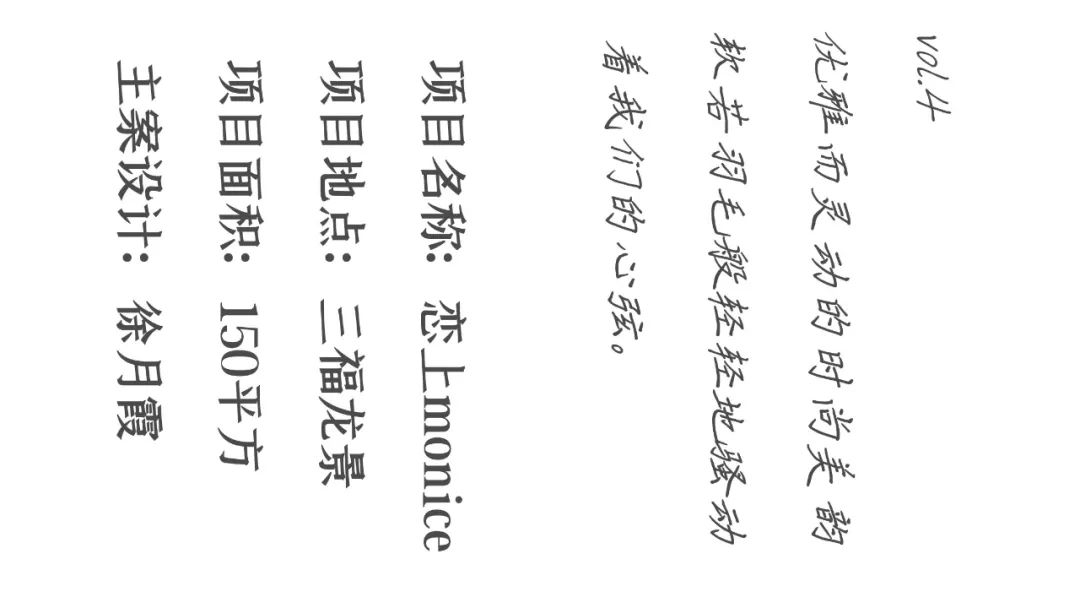 vol.4
优雅而灵动的时尚美韵
软若羽毛般轻轻地骚动
着我们的心弦。
项目名称: 恋上monice
项目地点: 三福龙景
项目面积: 150平方
主案设计: 徐月霞